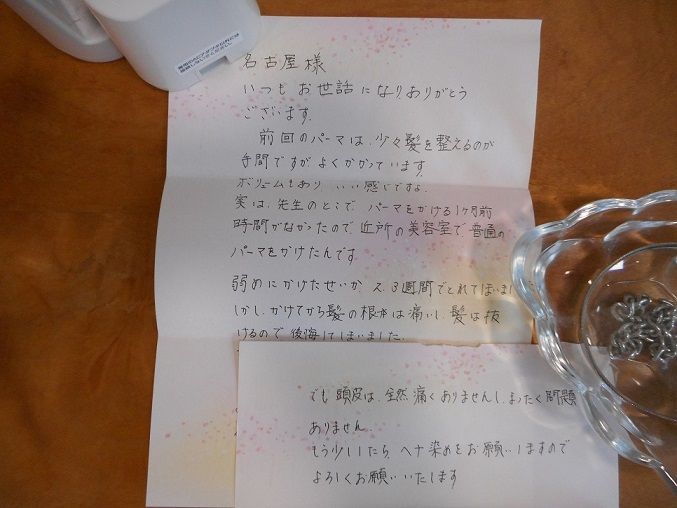 名古屋様
いつもお世話になりありがとう
ございます。
前回のパーマは、少々髪を整えるのが
手間ですがよくかかっています。
ボリュームもあり、いい感じですよ。
実は、先生のとこで、パーマをかける1ヶ月前
時間がなかったので、近所の美容室で普通の
パーマをかけたんです
弱めにかけたせいか 2、3週間でとれてしまいまし
しかし、かけてから髪の根本は痛いし、髪は抜
けるので、後悔してしまいました。
でも頭皮は、全然痛くありませんし、まったく問題
ありません。
もう少ししたら、ヘナ染めをお願いしますので
よろしくお願いいたします